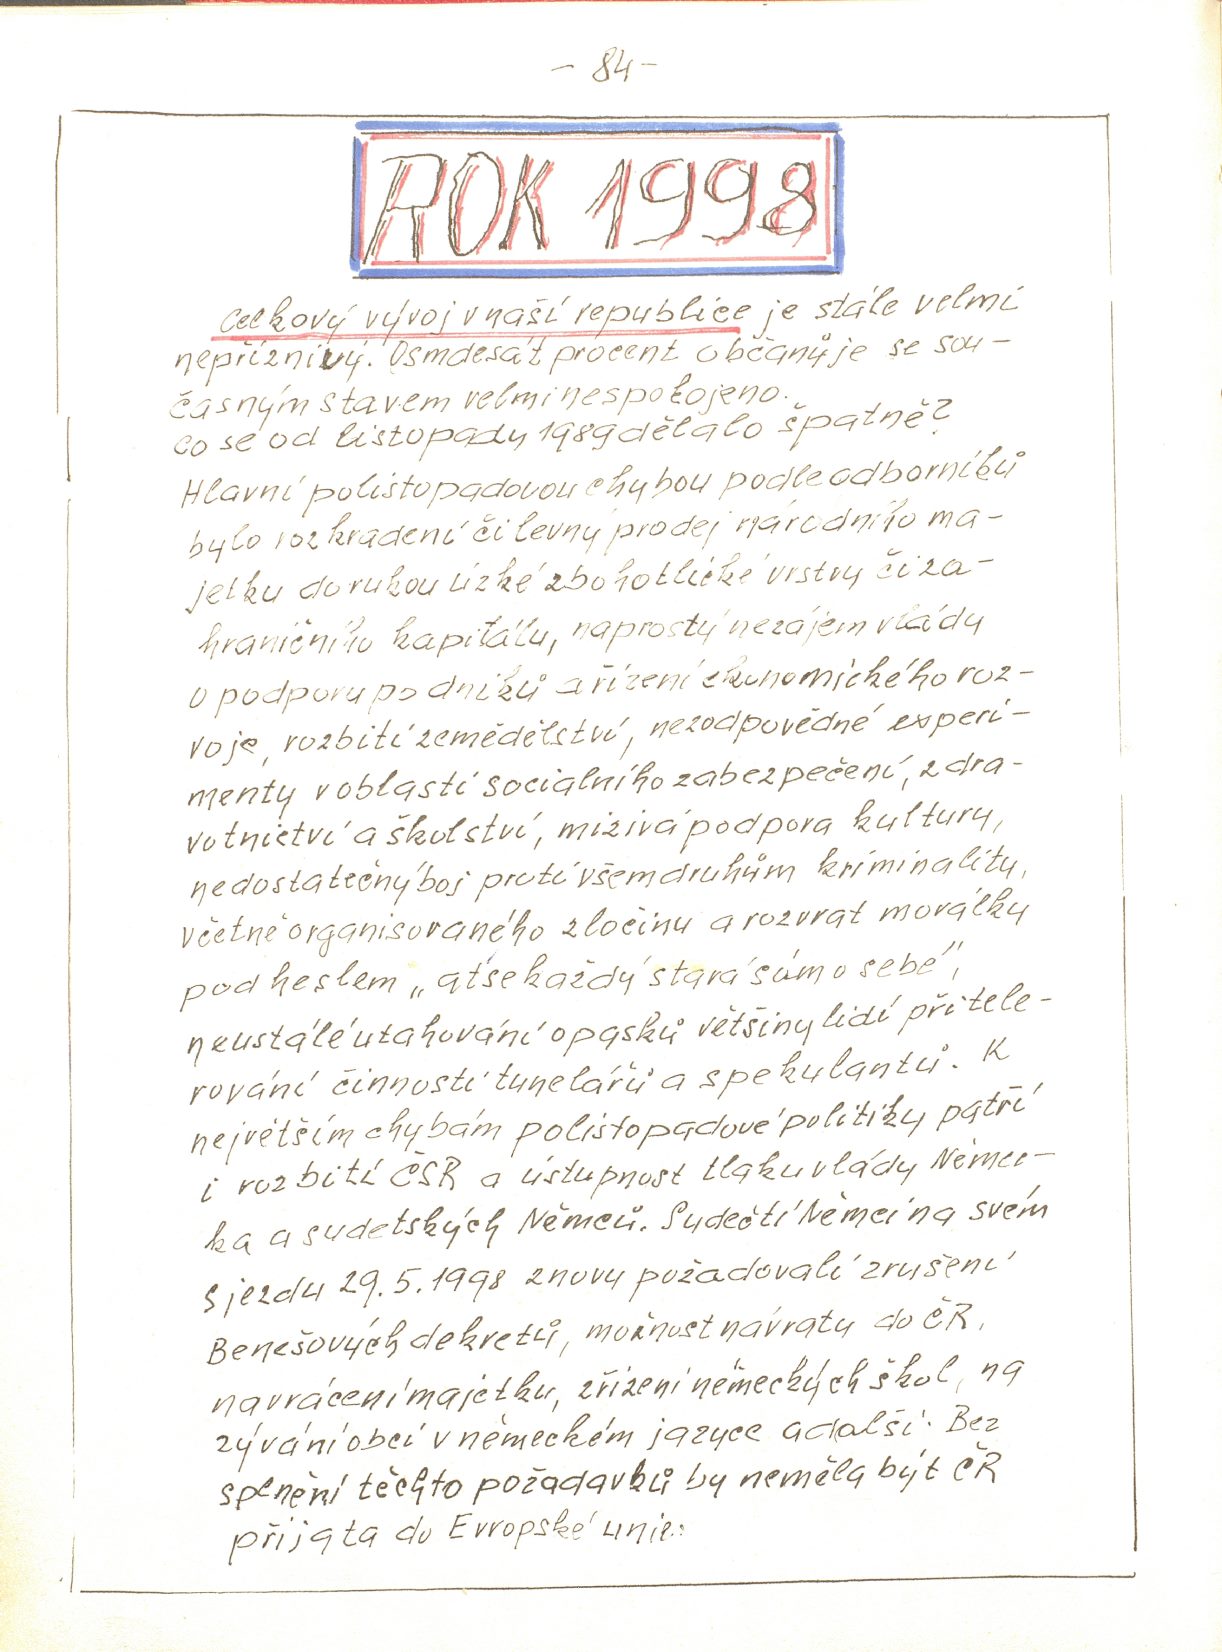 - 84 -
ROK 1998
Celkový vývoj v naší republice je stále velmi
nepříznivý. Osmdesát procent občanů je se sou-
časným stavem velmi nespokojeno.
Co se od listopadu 1989 dělalo špatně?
Hlavní polistopadovou chybou podle odborníků
bylo rozkradení či levný prodej národního ma-
jetku do rukou úzké zbohatlické vrstvy či za-
hraničního kapitálu, naprostý nezájem vlády
o podporu podniků a řízení ekonomického roz-
voje, rozbití zemědělství, nezodpovědné experi-
menty v oblasti sociálního zabezpečení, zdra-
votnictví a školství, mizivá podpora kultury,
nedostatečný boj proti všem druhům kriminality,
včetně organisovaného zločinu a rozvrat morálky
pod heslem „ať se každý stará sám o sebe",
neustálé utahování opasků většiny lidí při tole-
rování činnosti tunelářů a spekulantů. K
největším chybám polistopadové politiky patří
i rozbití ČSR a ústupnost tlaku vlády Němec-
ka a sudetských Němců. Sudečtí Němci na svém
sjezdu 29.5.1998 znovu požadovali zrušení
Benešových dekretů, možnost návratu do ČR,
navrácení majetku, zřízení německých škol, na
zývání obcí v německém jazyce a další. Bez
splnění těchto požadavků by neměla být ČR
přijata do Evropské unie.